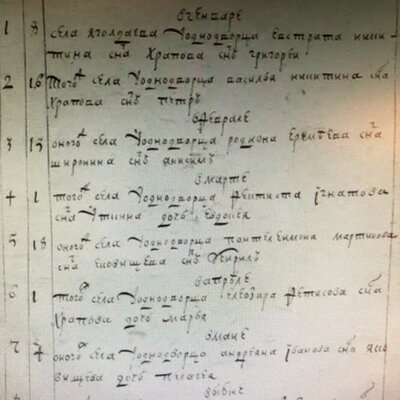 въ генваре
1 8 села яголдаева у однодворца евстрата ники
тина сна Храпова снъ григорей
2 16 того ж села у однодворца василья никитина сна
Храпова снъ петръ
в феврале
3 15 оного ж села у однодворца родиона еремеева сна
широнина снъ анисимъ
в марте
4 1 того ж села у однодворца фектиста игнатова
сна дочь евдокея
5 18 оного ж села у однодворца пантелеимона мартинова
сна снъ кирилъ
в апреле
6 1 того ж села у однодворца сна
Храпова дочь марфа
в маие
7 7 оного ж села у однодворца андреяна ивакова сна яко
вищева дочь пелагея